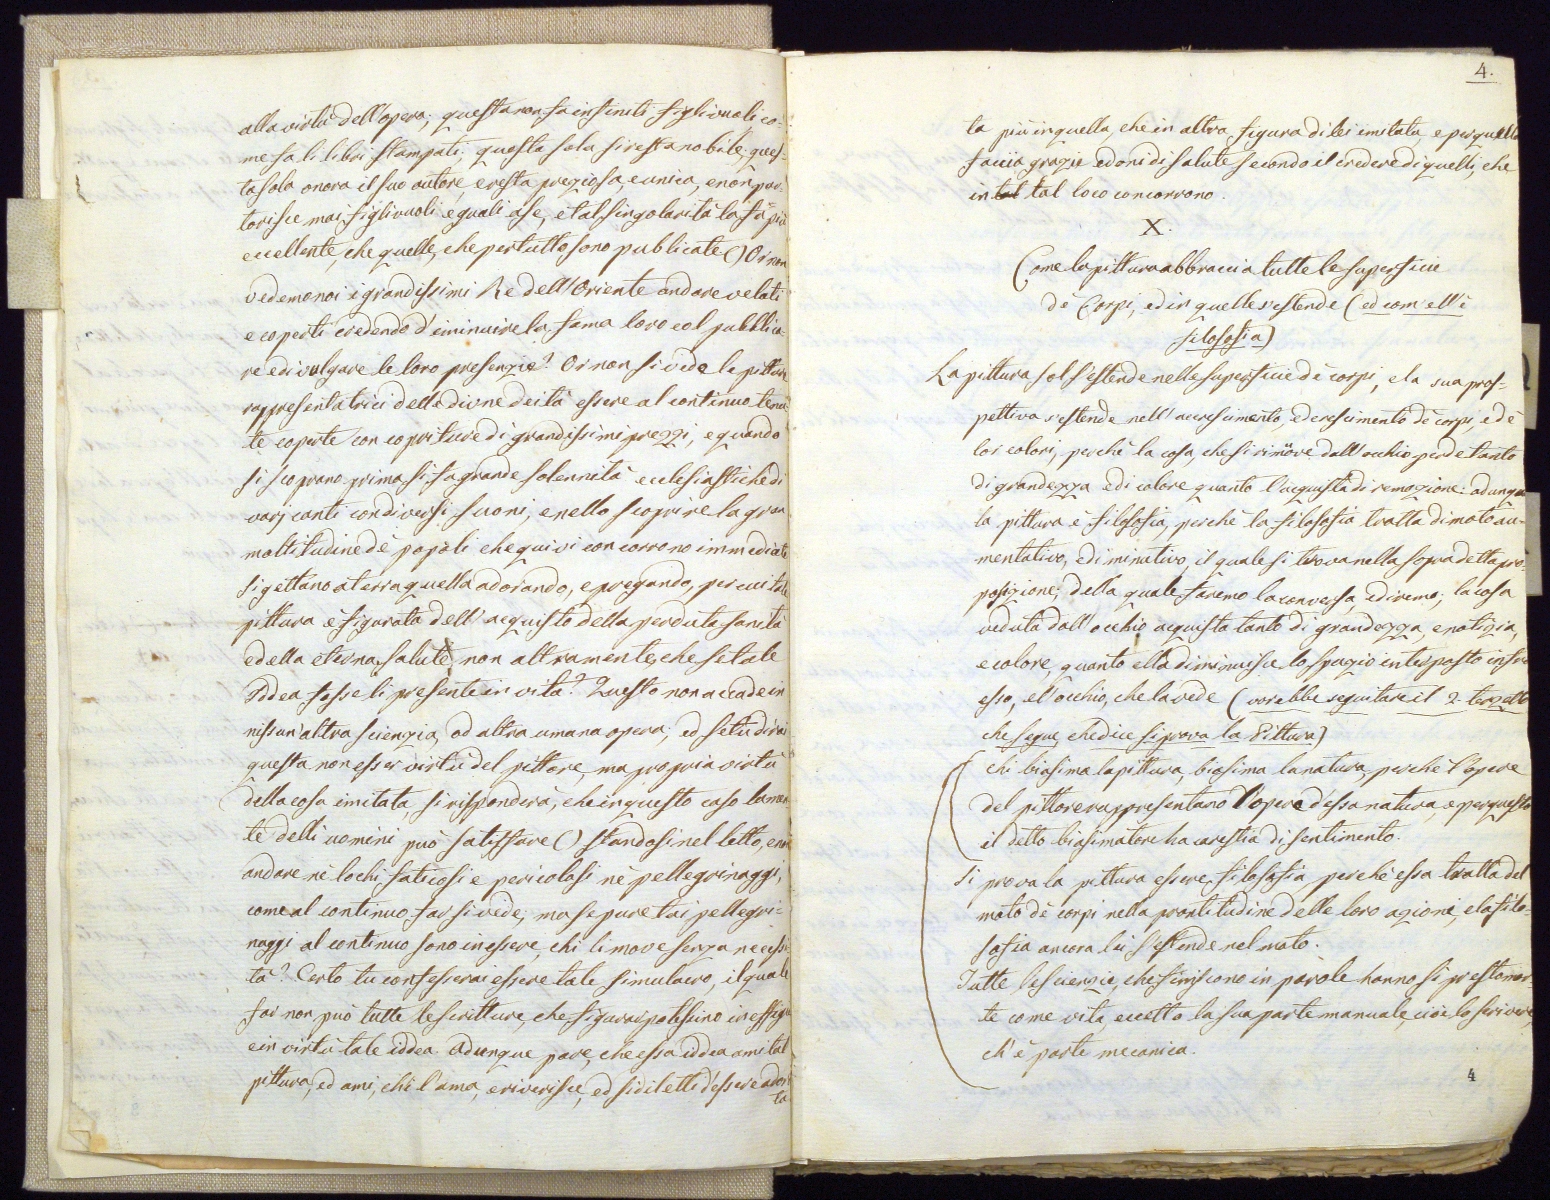 alla virtù dell'opera; questa non fa infiniti figlivuoli co-
me fa li libri stampati; questa sola si resta nobile, ques-
ta sola onora il suo autore, e resta preziosa, e unica, e non par-
torisce mai figlivuoli eguali a se, e tal singolarità la fà più
eccellente, che quelle, che per tutto sono publicate () Or non
vedemo noi i grandissimi Re dell'Oriente andare velati
e coperti credendo d'iminuire la fama loro col pubblica-
re e divulgare le loro presenzie? Or non si vide le pitture
rappresentatrici delle divine deità essere al continuo tenu-
te coperte con copriture di grandissimi prezzi, e quando
si scoprano prima si fa grande solennità ecclesiastiche di
varj canti con diversi suoni, e nello scoprire la gran
moltitudine dè popoli che quivi concorrono immediate
si gettano a terra quella adorando, e pregando, per cui tale
pittura è figurata dell'acquisto della perduta sanità
e della eterna salute, non altramente, che se tale
Iddea fosse lì presente in vita? Questo non accade in
nissun'altra scienzia, od altra umana opera; ed se tu dirai
questa non esser virtù del pittore, ma propria virtù
della cosa imitata, si risponderà, che in questo caso la men-
te delli uomini può satisfare () standosi nel letto, e non
andare nè lochi faticosi e pericolosi nè pellegrinaggi,
come al continuo far si vede; ma se pure tai pellegri-
naggi al continuo sono in essere, chi li move senza necessi-
tà? Certo tu confesserai essere tale simulacro, il quale
far non può tutte le scritture, che figurar potessino in effigie
e in virtù tale iddea. Adunque pare, che essa iddea ami tal
pittura, ed ami, chi l'ama, e riverisce, ed si diletti d'essere adora-
ta
4.
ta più in quella, che in altra figura di lei imitata, e per quello
faccia grazie e doni di salute secondo il credere di quelli, che
in tal tal loco concorrono.
X.
Come la pittura abbraccia tutte le superficie
dè Corpi, ed in quelle s'estende (ed com'ell'è
filosofia)
La pittura sol s'estende nelle superficie dè corpi, e la sua pros-
pettiva s'estende nell'accrescimento, e decrescimento dè corpi, e dè
lor colori; perchè la cosa, che si rimove dall'occhio perde tanto
di grandezza e di colore quanto l'acquista di remozione: adunque
la pittura è filosofia, perchè la filosofia tratta di moto au-
mentativo, e diminutivo, il quale si trova nella sopra detta pro-
posizione; della quale faremo la conversa, e diremo; la cosa
veduta dall'occhio acquista tanto di grandezza, e notizia,
e colore, quanto ella diminuisce lo spazio interposto infra
esso, e l'occhio, che la vede (vorebbe seguitare il 2 terzetto
che segue, che dice si prova la Pittura)
Chi biasima la pittura, biasima la natura, perchè l'opere
del pittore rappresentano l'opere d'essa natura, e per questo
il detto biasimatore ha carestia di sentimento.
Si prova la pittura essere filosofia perchè essa tratta del
moto dè corpi nella prontitudine delle loro azioni, e la filo-
sofia ancora lei s'estende nel moto.
Tutte le scienzie, che finiscono in parole hanno sì presto mor-
te come vita, eccetto la sua parte manuale, cioè lo scrivere,
ch'è parte mecanica.
4